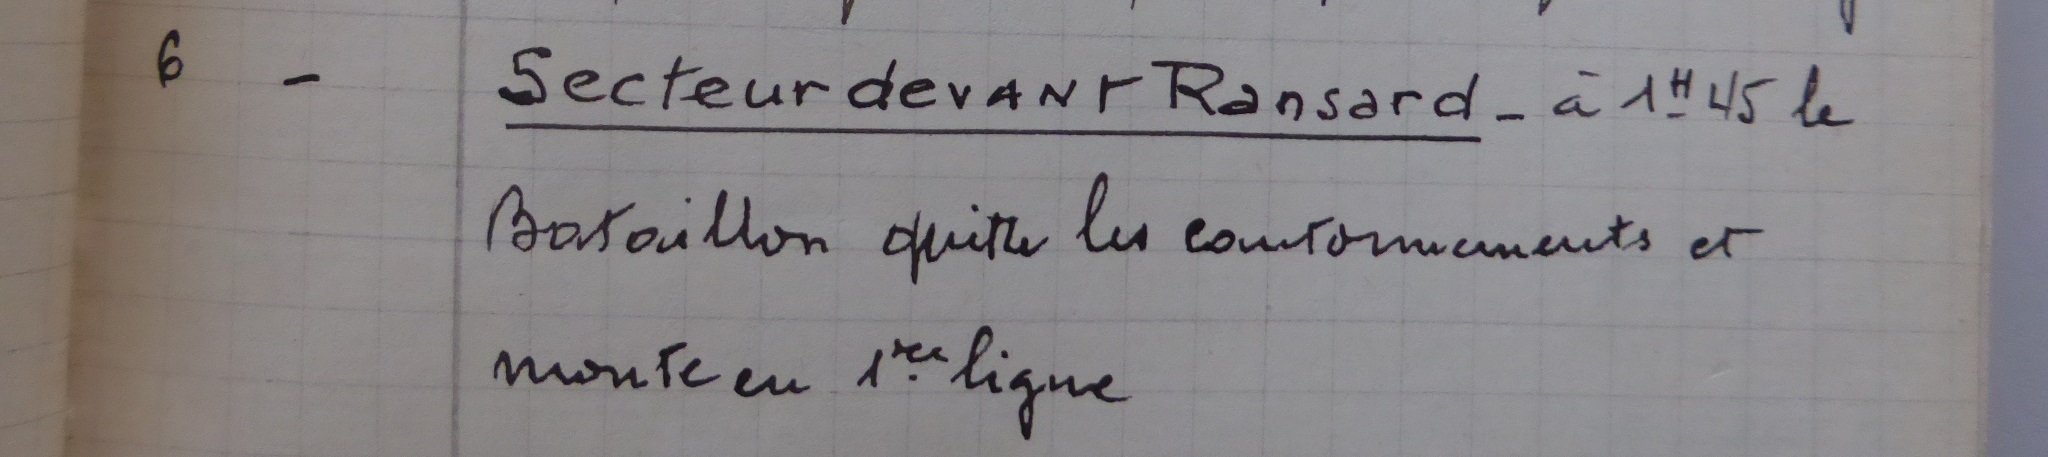 6 - Secteur devant Ransard - à 1H45 le
Bataillon quitte les cantonnements et
monte en 1ère ligne